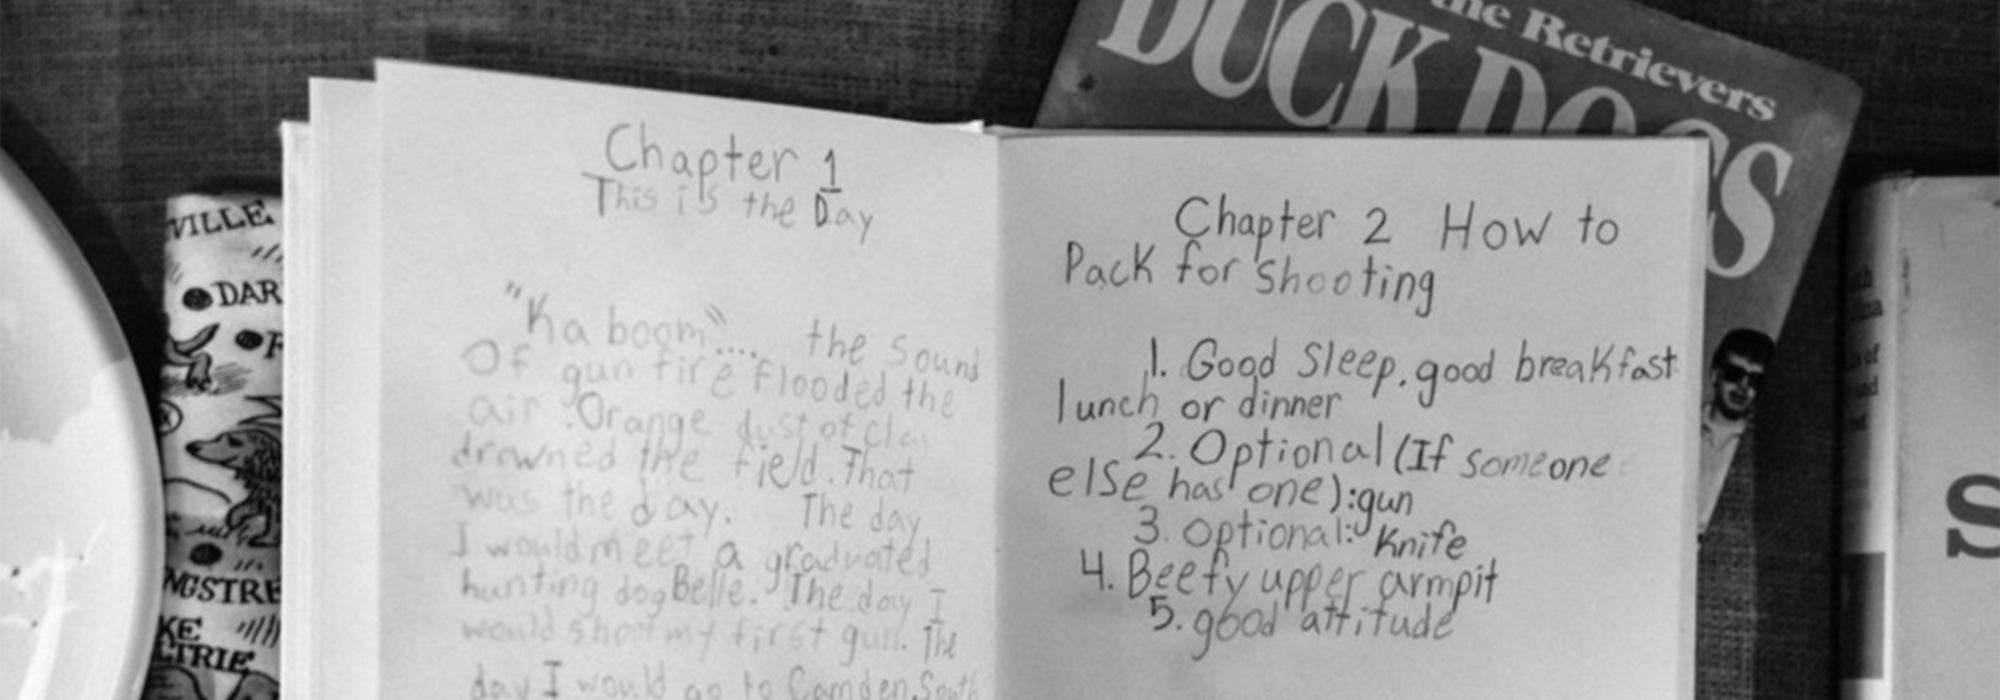 the Retrievers
DUCK DOGS
VILLE
DAR
F
NGSTRE
KE
LTRIE
Chapter 1
This is the Day
"Kaboom".... the sound
Of gun fire flooded the
air. Orange dust of cla
drowned the field. That
was the day. The day
I would meet a graduated
hunting dog Belle. The day I
would shoot my first gun. The
day I would go to Camden, South
Chapter 2 How to
Pack for Shooting
1. Good Sleep, good breakfast
lunch or dinner
2. Optional (If someone
else has one): gun
3. Optional: Knife
4. Beefy upper armpit
5. good attitude
S